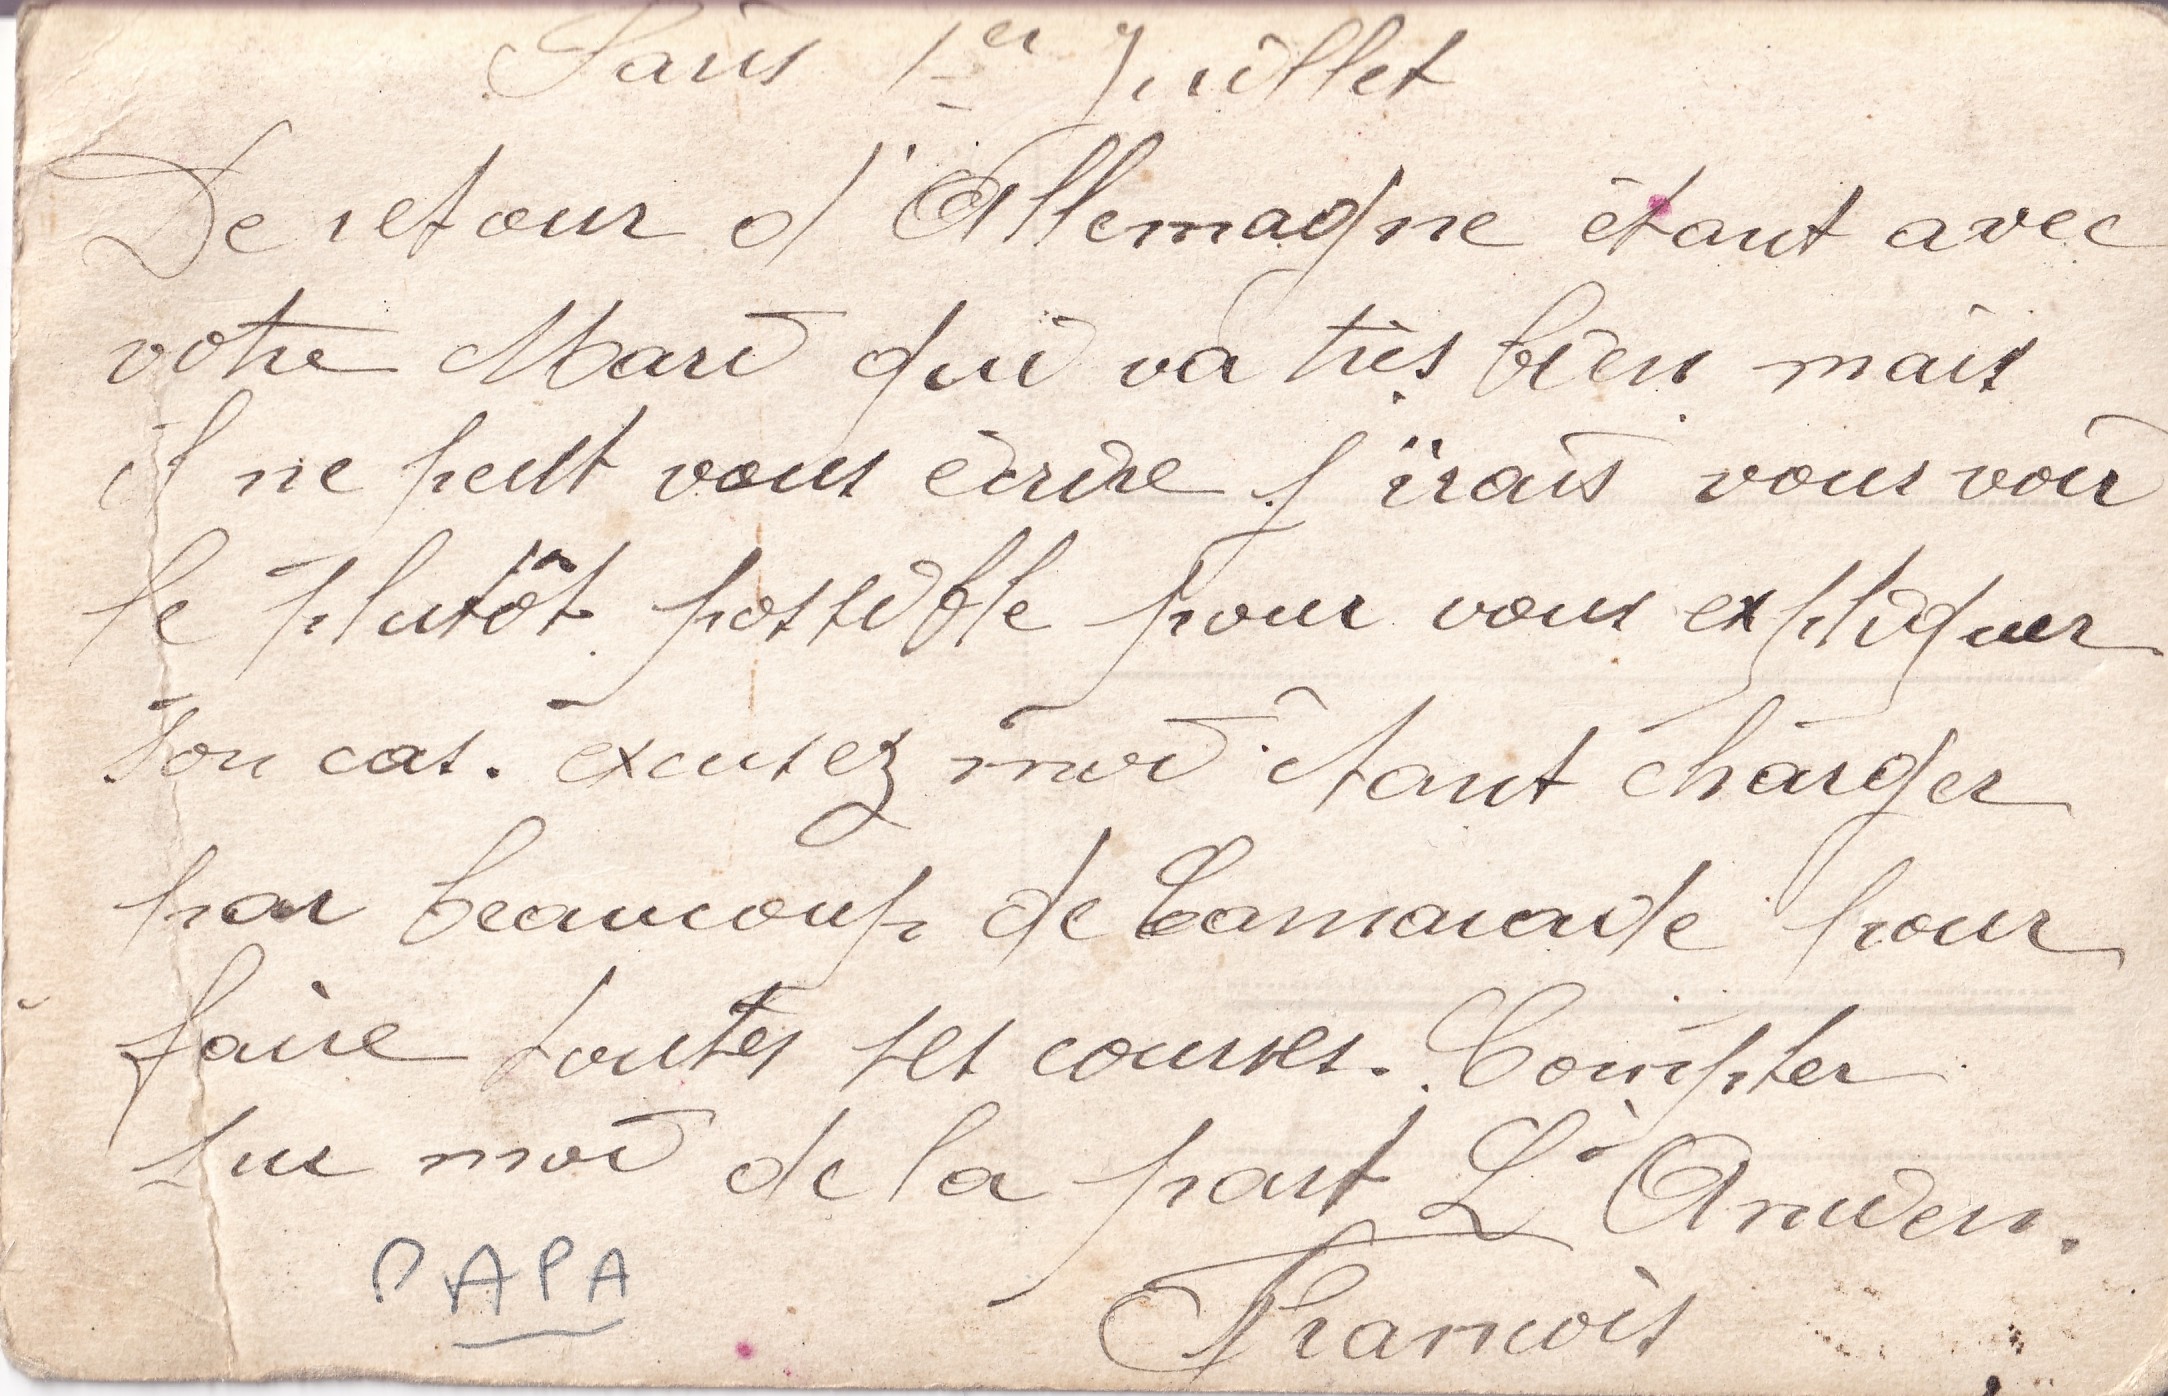 Paris 1er Juillet
De retour d'Allemagne êtant avec
votre Mari qui va très bien mais
il ne peut vous ècrire j'irais vous voir
le plutôt possible pour vous expliquer
son cas. excusez moi étant charger
par beaucoup de Camarade pour
faire toutes ses courses. Compter
sur moi de la part L'Ancien.
Francois
PAPA